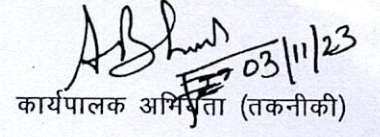 03/11/23
कार्यपालक अभियंता (तकनीकी)